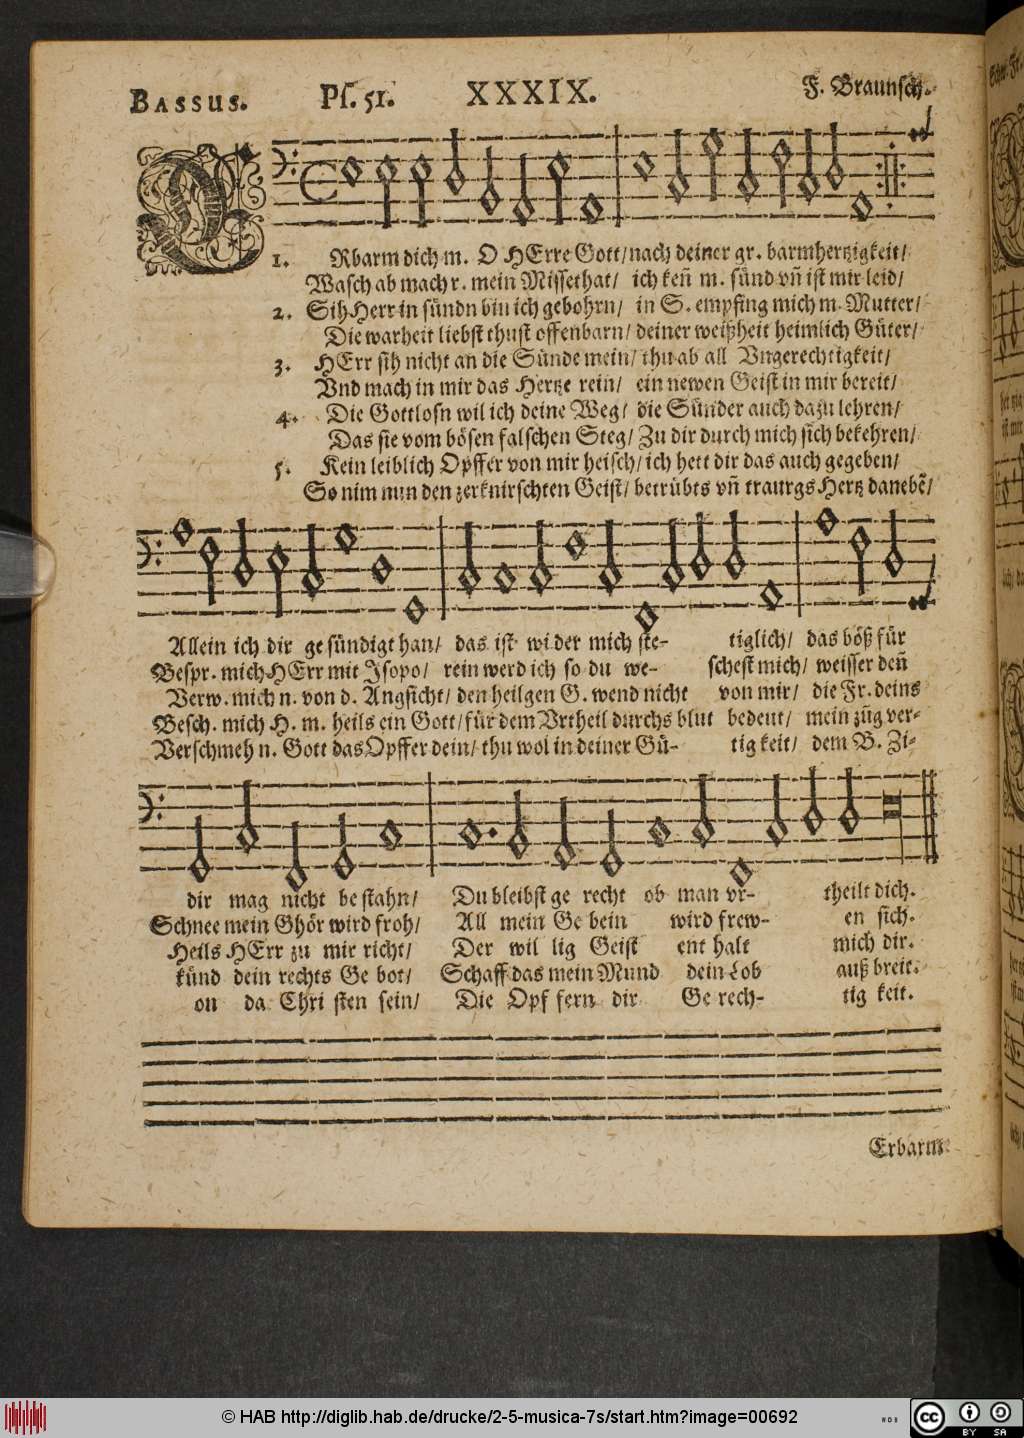 BASSUS. Ps. 51. XXXIX. F. Braunsch.
1. Rbarm dich m. O HErre Gott/ nach deiner gr. barmhertzigkeit/
Wasch ab mach r. mein Missethat/ ich keñ m. sünd vñ ist mir leid/
2. Sih Herr in sündn bin ich gebohrn/ in S. empfing mich m. Mutter/
Die warheit liebst thust offenbarn/ deiner weißheit heimlich Güter/
3. HErr sih nicht an die Sünde mein/ thu ab all Vngerechtigkeit/
Vnd mach in mir das Hertze rein/ ein newen Geist in mir bereit/
4. Die Gottlosn wil ich deine Weg/ die Sünder auch dazu lehren/
Das sie vom bösen falschen Steg/ Zu dir durch mich sich bekehren/
5. Kein leiblich Opffer von mir heisch/ ich hett dir das auch gegeben/
So nim nun den zerknirschten Geist/ betrübts vñ traurgs Hertz danebẽ/
Allein ich dir gesündigt han/ das ist wider mich ste- tiglich/ das böß für
Bespr. mich HErr mit Isopo/ rein werd ich so du we- schest mich/ weisser deñ
Verw. mich n. von d. Angsicht/ den heilgen G. wend nicht von mir/ die Fr. deins
Besch. mich H. m. heils ein Gott/ für dem Vrtheil durchs blut bedeut/ mein züg ver-
Verschmeh n. Gott das Opffer dein/ thu wol in deiner Gü- tig keit/ dem B. Zi-
dir mag nicht bestahn/ Du bleibst ge recht ob man vr- theilt dich.
Schnee mein Ghör wird froh/ All mein Ge bein wird frew- en sich.
Heils HErr zu mir richt/ Der wil lig Geist ent halt mich dir.
künd dein rechts Ge bot/ Schaff das mein Mund dein Lob auß breit.
on da Chri sten sein/ Die Opf fern dir Ge rech- tig keit.
Erbarm
© HAB http://diglib.hab.de/drucke/2-5-musica-7s/start.htm?image=00692
cc BY SA